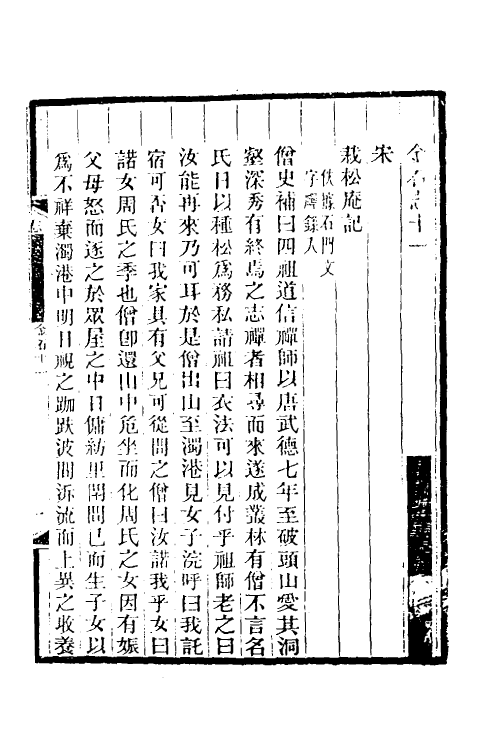 金石志十一
宋
栽松庵記
佚據石門文
字禪錄入
僧史補曰四祖道信禪師以唐武德七年至破頭山愛其洞
壑深秀有終焉之志禪者相尋而來遂成叢林有僧不言名
氏日以種松爲務私請祖曰衣法可以見付乎祖師老之曰
汝能再來乃可耳於是僧出山至濁港見女子浣呼曰我託
宿可否女曰我家具有父兄可從問之僧曰汝諾我乎女曰
諾女周氏之季也僧卽還山中危坐而化周氏之女因有娠
父母怒而逐之於眾屋之中日傭紡里閈間已而生子女以
爲不祥棄濁港中明日視之跏趺波間泝流而上異之收養
金石十一